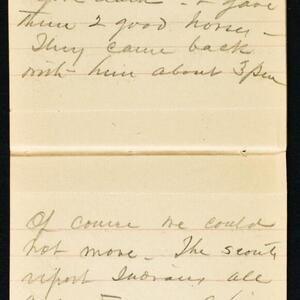 & gave
them 2 good horses -
They came back
with him about 3 P.M.
Of course we could
not move - The scouts
report Indians all